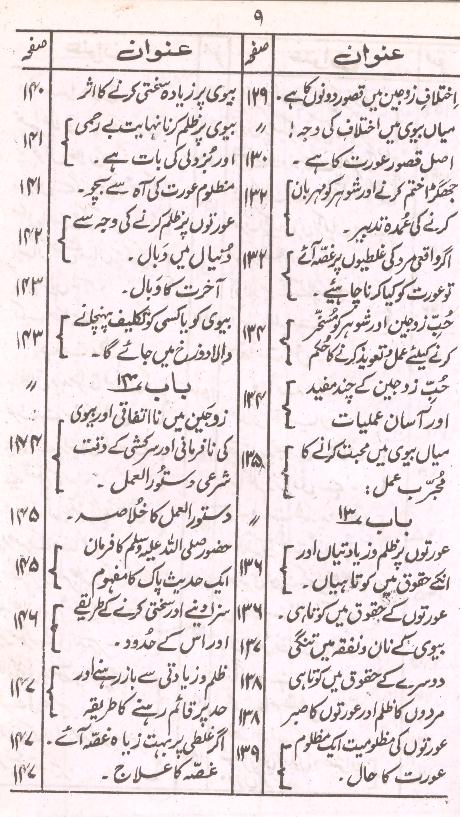 ۹
عنوان صفحہ
اختلافِ زوجین میں قصور دونوں کا ہے۔ ۱۲۹
میاں بیوی میں اختلاف کی وجہ! 〃
اصل قصور عورت کا ہے۔ ۱۳۰
جھگڑا ختم کرنے اور شوہر کو مہربان ۱۳۲
کرنے کی عُمدہ تدبیر۔
اگر واقعی مرد کی غلطیوں پر غصّہ آئے ۱۳۲
تو عورت کو کیا کرنا چاہیئے۔
حُبِّ زوجین اور شوہر کو مُسخّر ۱۳۴
کرنے کیلئے عمل و تعویذ کرنے کا حُکم
حُبِّ زوجین کے چند مفید ۱۳۴
اور آسان عملیات
میاں بیوی میں محبّت کرانے کا ۱۳۵
مُجرّب عمل:
باب ۱۳ 〃
عورتوں پر ظلم و زیادتیاں اور ۱۳۶
انکے حقوق میں کوتاہیاں۔
عورتوں کے حقوق میں کوتاہی۔ ۱۳۶
بیوی کے نان و نفقہ میں تنگی ۱۳۷
دوسرے کے حقوق میں کوتاہی ۱۳۸
مردوں کا ظلم اور عورتوں کا صبر ۱۳۸
عورتوں کی مظلومیت ایک مظلوم ۱۳۹
عورت کا حال۔
عنوان صفحہ
بیوی پر زیادہ سختی کرنے کا اثر ۱۴۰
بیوی پر ظلم کرنا نہایت بے رحمی ۱۴۱
اور بُزدلی کی بات ہے۔
مظلوم عورت کی آہ سے بچو۔ ۱۴۱
عورتوں پر ظلم کرنے کی وجہ سے ۱۴۲
دُنیا میں وَبال۔
آخرت کا وَبال۔ ۱۴۳
بیوی کو یا کسی کو تکلیف پہنچانے ۱۴۳
والا دوزخ میں جائے گا۔
باب ۱۴ 〃
زوجین میں نا اتفاقی اور بیوی
کی نافرمانی اور سرکشی کے وقت ۱۴۴
شرعی دستُور العمل۔
دستور العمل کا خُلاصہ۔ ۱۴۵
حضور صلی اللہ علیہ وسلم کا فرمان ۱۴۵
ایک حدیث پاک کا مفہوم
سزا دینے اور سختی کرنے کے طریقے ۱۴۶
اور اس کے حُدود۔
ظلم و زیادتی سے باز رہنے اور ۱۴۷
حد پر قائم رہنے کا طریقہ
اگر غلطی پر بہت زیادہ غصّہ آئے۔ ۱۴۷
غصّہ کا علاج۔ ۱۴۷